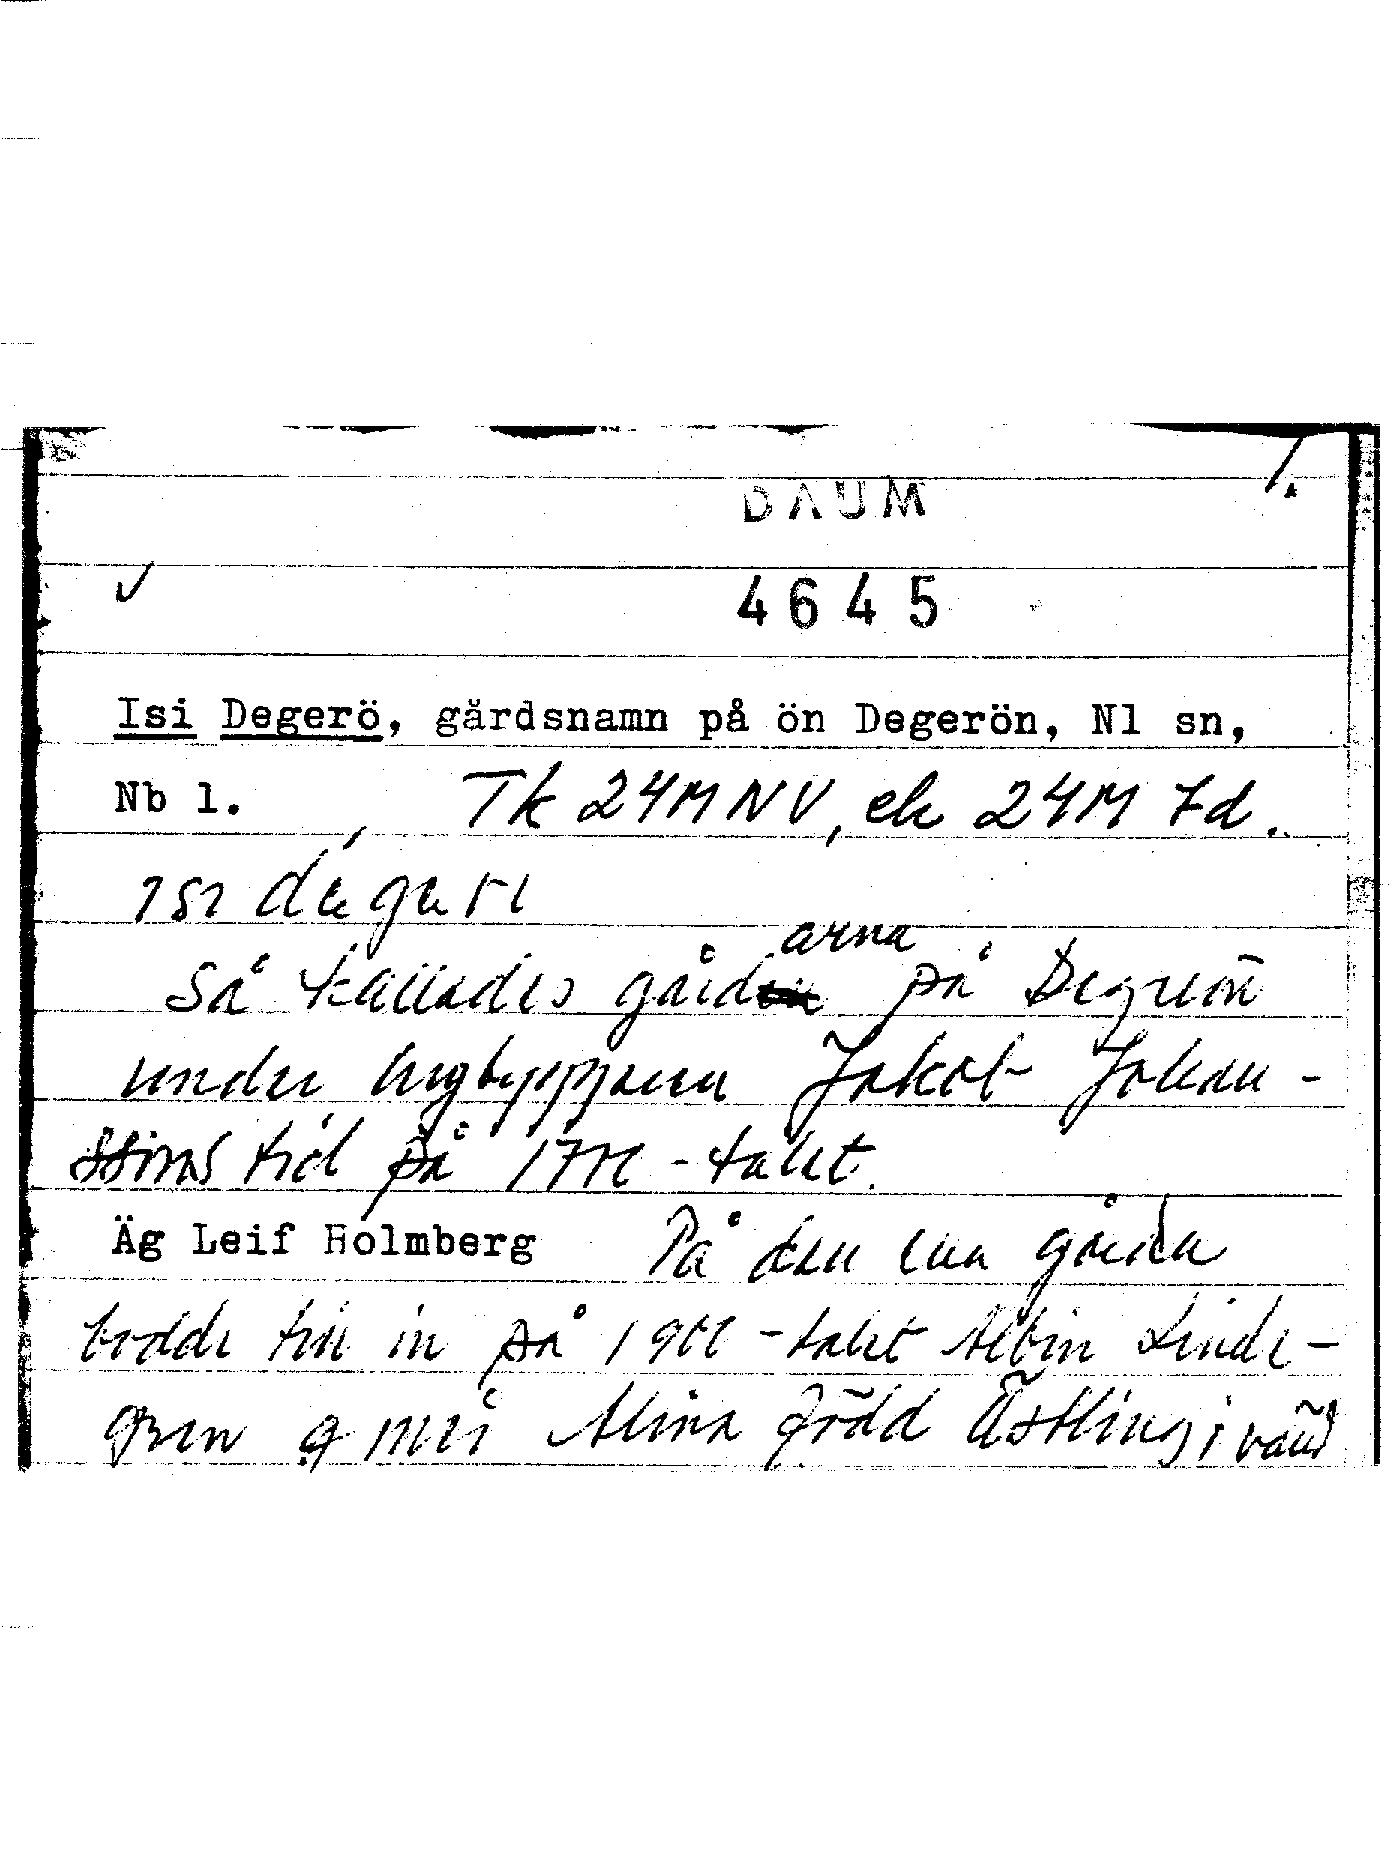 1.
DAUM
✓ 4645
Isi Degerö, gårdsnamn på ön Degerön, Nl sn,
Nb l. Tk 24M NV, ek 24M 7d.
isi
Så kallades gårdarna på Degerön
under Jakob Johan-
ssons tid på 1700-talet.
Äg Leif Holmberg På den ena gården
bodde till in på 1900-talet Albin Lind-
gren g m Alina född Östling i